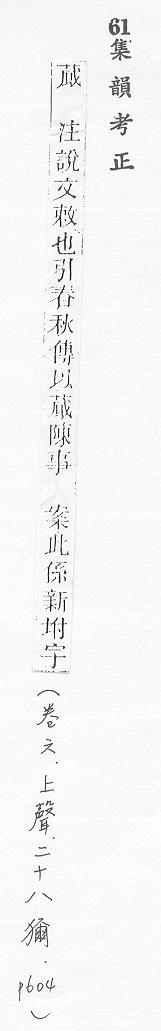 61 集韻考正
蕆 注說文敕也引春秋傳以蕆陳事 案此係新坿字（卷六．上聲．二十八獮．p604）